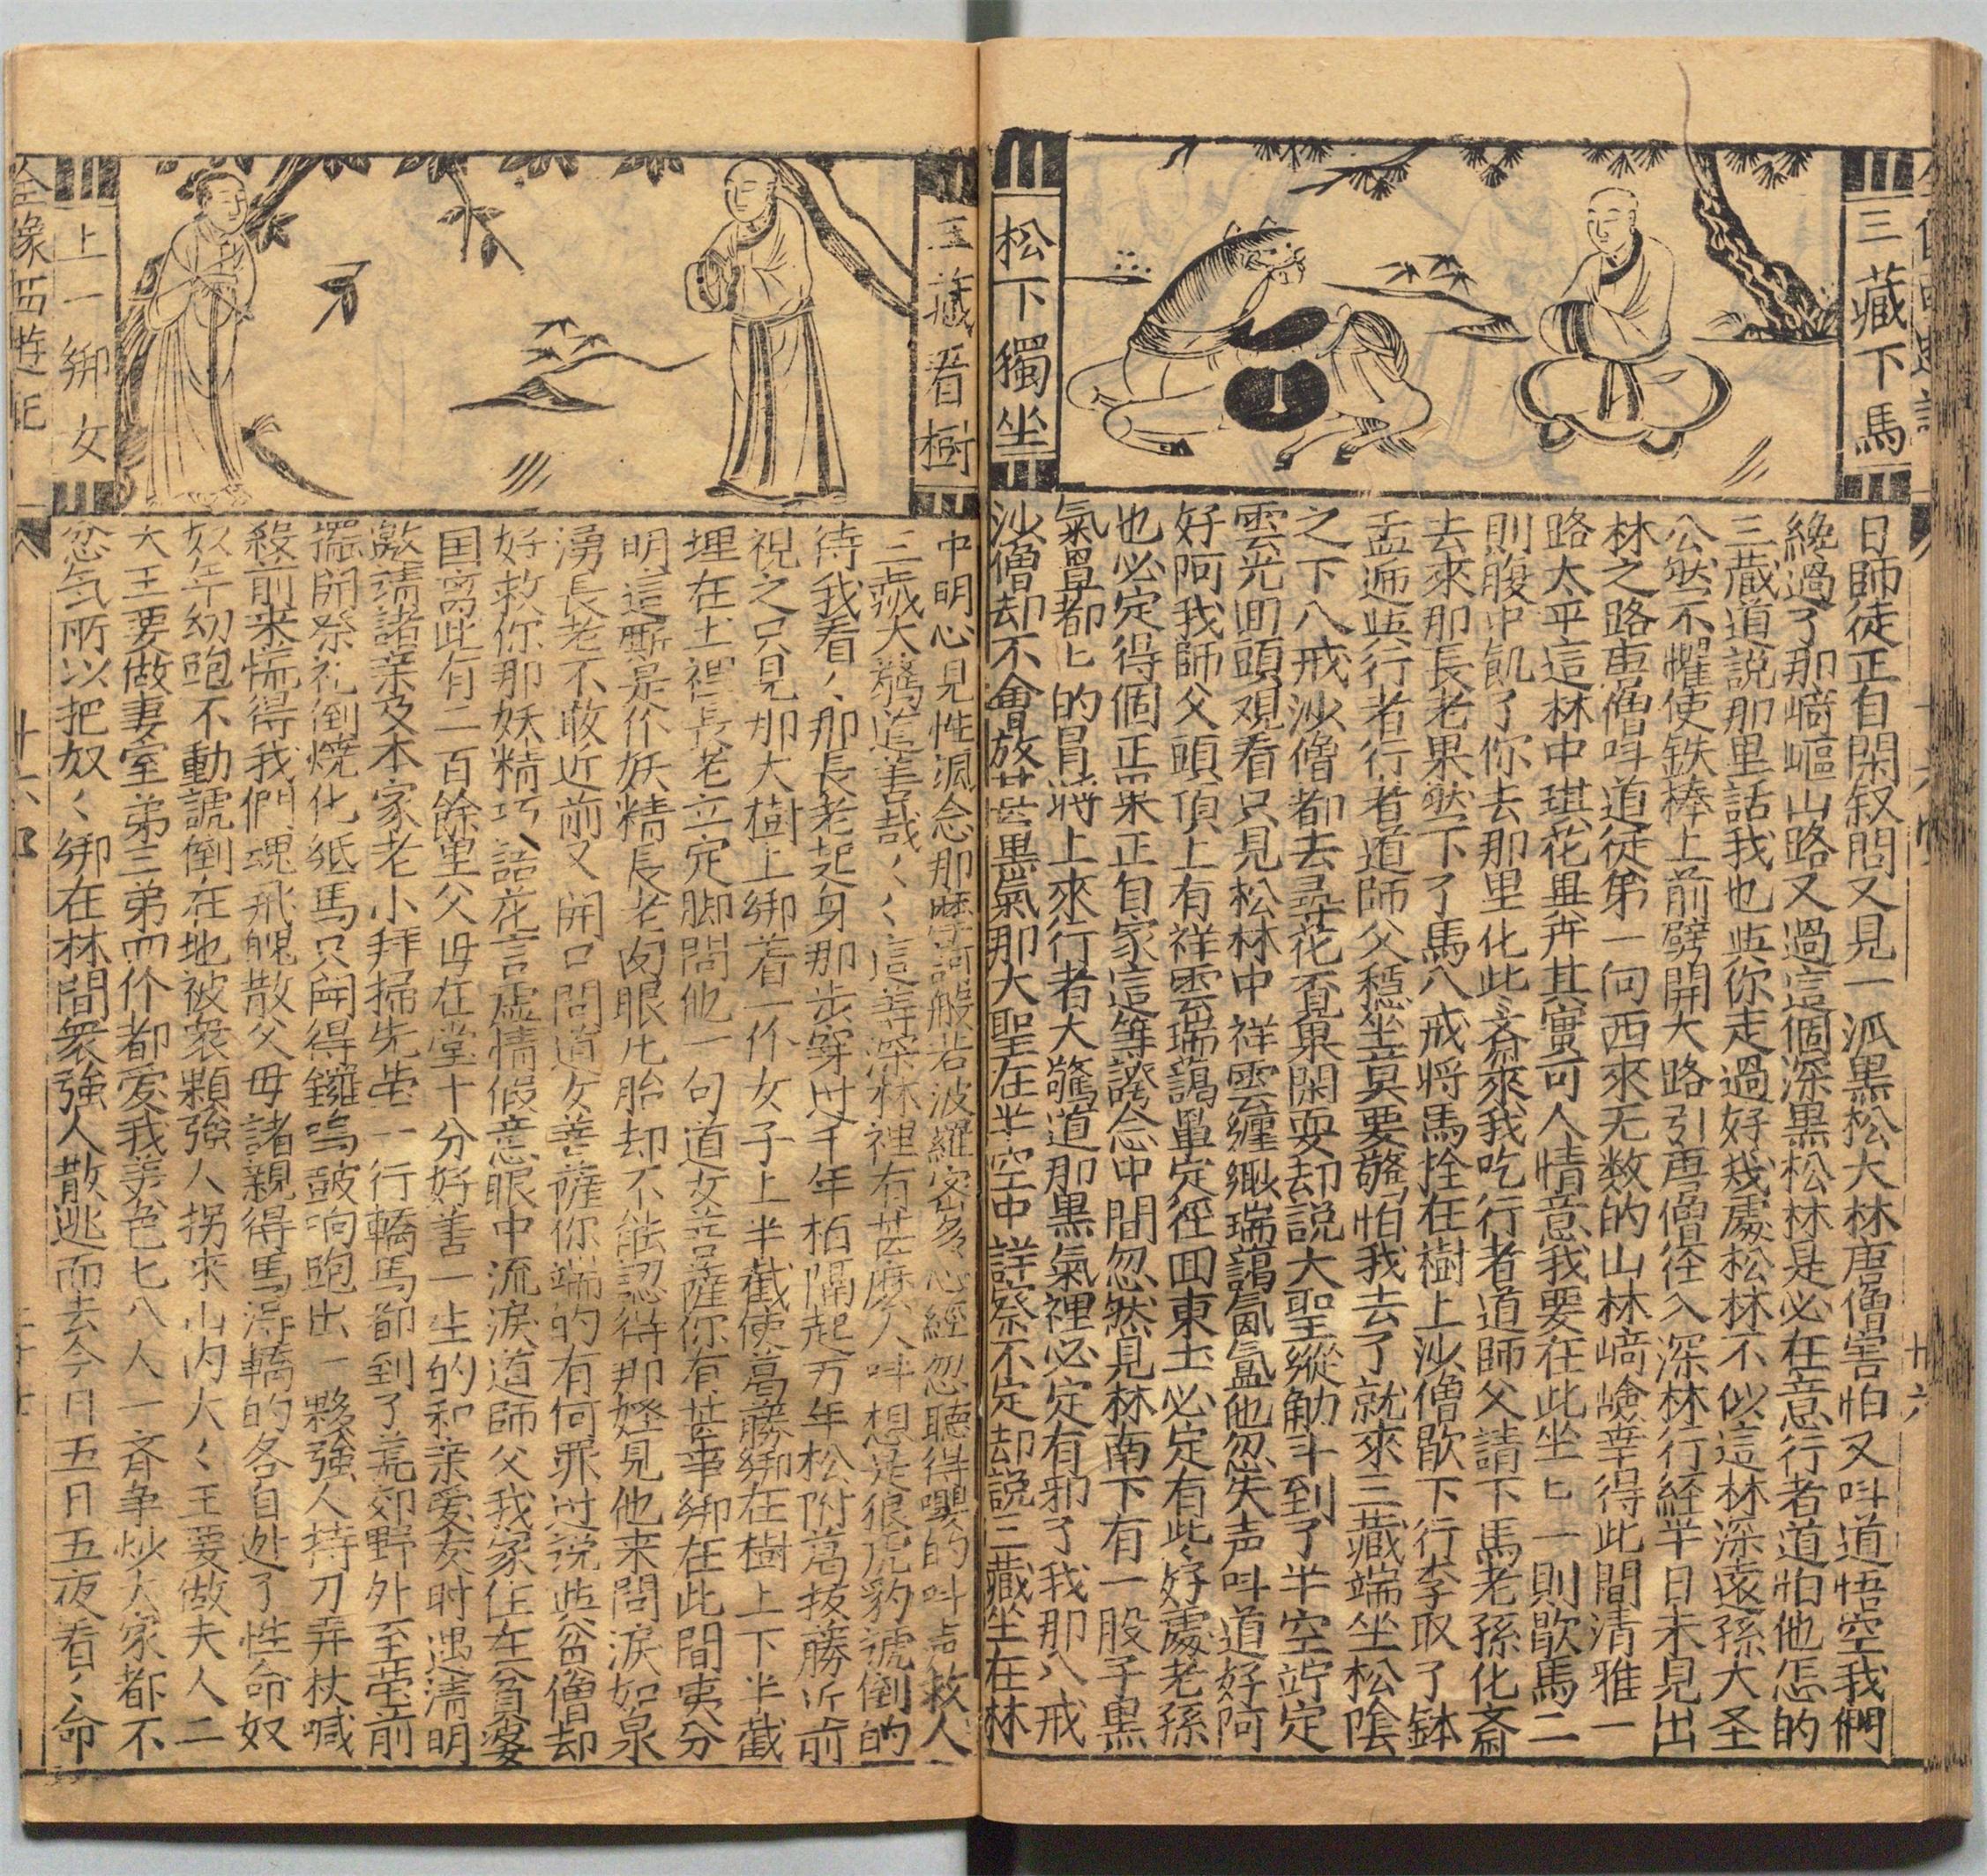 三藏下馬
松下獨坐
日師徒正自閑叙問又見一派黑松大林唐僧害怕又叫道悟空我們
纔過了那崎嶇山路又過這個深黑松林是必在意行者道怕他怎的
三藏道説那里話我也與你走過好幾處松林不似這林深遠孫大圣
公然不懼使鉄棒上前劈開大路引唐僧径入深林行経半日未見出
林之路唐僧叫道徒弟一向西來无数的山林崎嶮幸得此間清雅一
路太平這林中琪花異卉其實可人情意我要在此坐匕一則歇馬二
則腹中飢了你去那里化此斎來我吃行者道師父請下馬老孫化斎
去來那長老果然下了馬八戒将馬拴在樹上沙僧歇下行李取了鉢
盂逓與行者行者道師父穏坐莫要驚怕我去了就來三藏端坐松陰
之下八戒沙僧都去尋花覓果閑耍却説大聖縱觔斗到了半空竚定
雲光囬頭观看只見松林中祥雲纏繞瑞靄氤氲他忽失声叫道好阿
好阿我師父頭頂上有祥雲瑞靄罩定徑囬東土必定有此好處老孫
也必定得個正果正自家這等誇念中間忽然見林南下有一股子黑
氣骨都匕的冒將上來行者大驚道那黑氣裡必定有邪了我那八戒
沙僧却不會放甚黑氣那大聖在半空中詳察不定却説三藏坐在林
三藏看樹
上一綁女
中明心見性諷念那摩訶般若波羅密多心經忽聽得嚶的叫声救人
三藏大驚道善哉〻〻這等深林裡有甚麽人叫想是狼虎豹諕倒的
待我看〻那長老起身那步穿过千年柏隔起万年松附葛扳藤近前
視之只見那大樹上綁着一个女子上半截使葛藤綁在樹上下半截
埋在土裡長老立定脚問他一句道女菩薩你有甚事綁在此間夷分
明這厮是个妖精長老肉眼凡胎却不能認得那怪見他来問淚如泉
湧長老不敢近前又開口問道女菩薩你端的有何罪过説與貧僧却
好救你那妖精巧語花言虚情假意眼中流淚道師父我家住在貧婆
国离此有二百餘里父母在堂十分好善一生的和亲爱友时遇清明
邀請諸亲及本家老小拜掃先塋一行轎馬都到了荒郊野外至塋前
擺開祭礼倒燒化紙馬只聞得鑼鳴鼓响跑出一夥強人持刀弄杖喊
殺前来慌得我們魂飛魄散父母諸親得馬得轎的各自逃了性命奴
奴年幼跑不動諕倒在地被衆顆強人拐来山内大〻王要做夫人二
大王要做妻室弟三弟四个都爱我美色七八人一斉争炒大家都不
忿気所以把奴〻綁在林間衆強人散逃而去今日五日五夜看〻命
全像西遊記
廿六